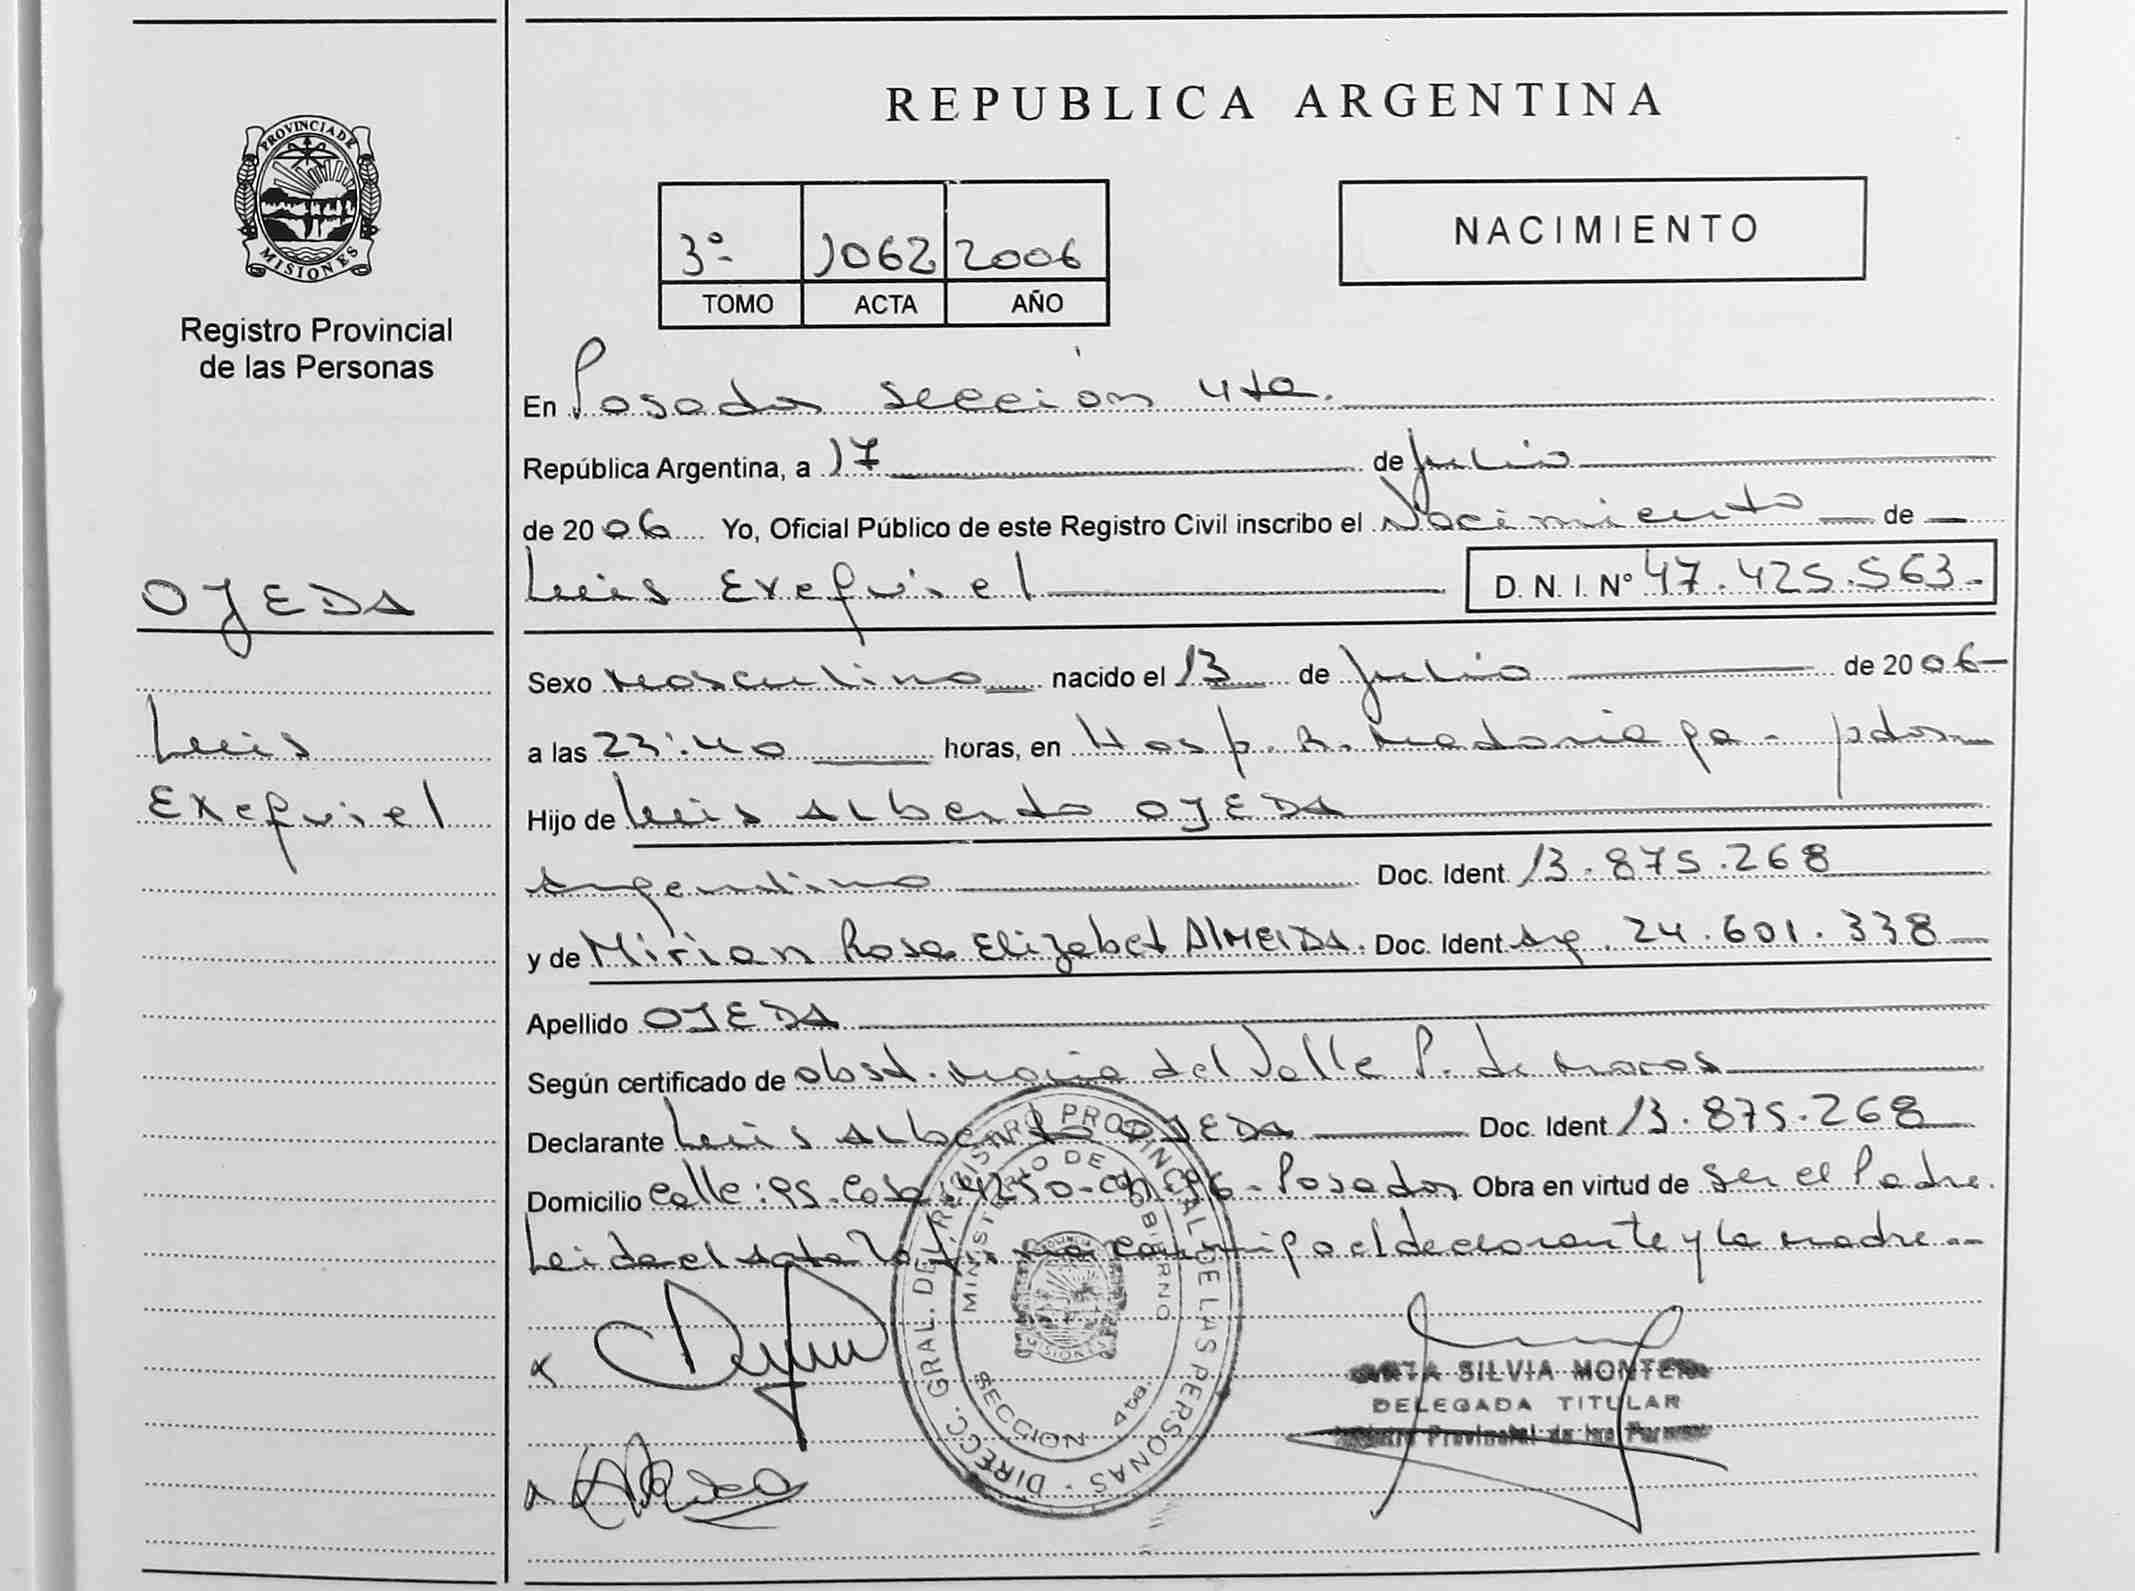 REPUBLICA ARGENTINA
PROVINCIA DE
MISIONES
Registro Provincial
de las Personas
3º 1062 2006
TOMO ACTA AÑO
NACIMIENTO
En Posadas sección 4ta.
República Argentina, a 17 de Julio
de 2006 Yo, Oficial Público de este Registro Civil inscribo el Nacimiento de
Luis Exequiel D. N. I. Nº 47.425.563
OJEDA
Luis
Exequiel
Sexo Masculino nacido el 13 de Julio de 2006
a las 23:40 horas, en Hosp. R. Madariaga - pdas
Hijo de Luis Alberto OJEDA
Argentino Doc. Ident. 13.875.268
y de Mirian Rosa Elizabet AlMEIDA. Doc. Ident. Arg. 24.601.338
Apellido OJEDA
Según certificado de obst. María del Valle P. de
Declarante Luis Alberto OJEDA Doc. Ident. 13.875.268
Domicilio calle: 95. Casa: 4250 - Posadas Obra en virtud de ser el Padre.
Leida el acta la firma conmigo el declarante y la madre
DIRECC. GRAL. DEL REGISTRO PROVINCIAL DE LAS PERSONAS
MINISTERIO DE GOBIERNO
MISIONES
SECCION 4ta
SILVIA
DELEGADA TITULAR
Provincial de las